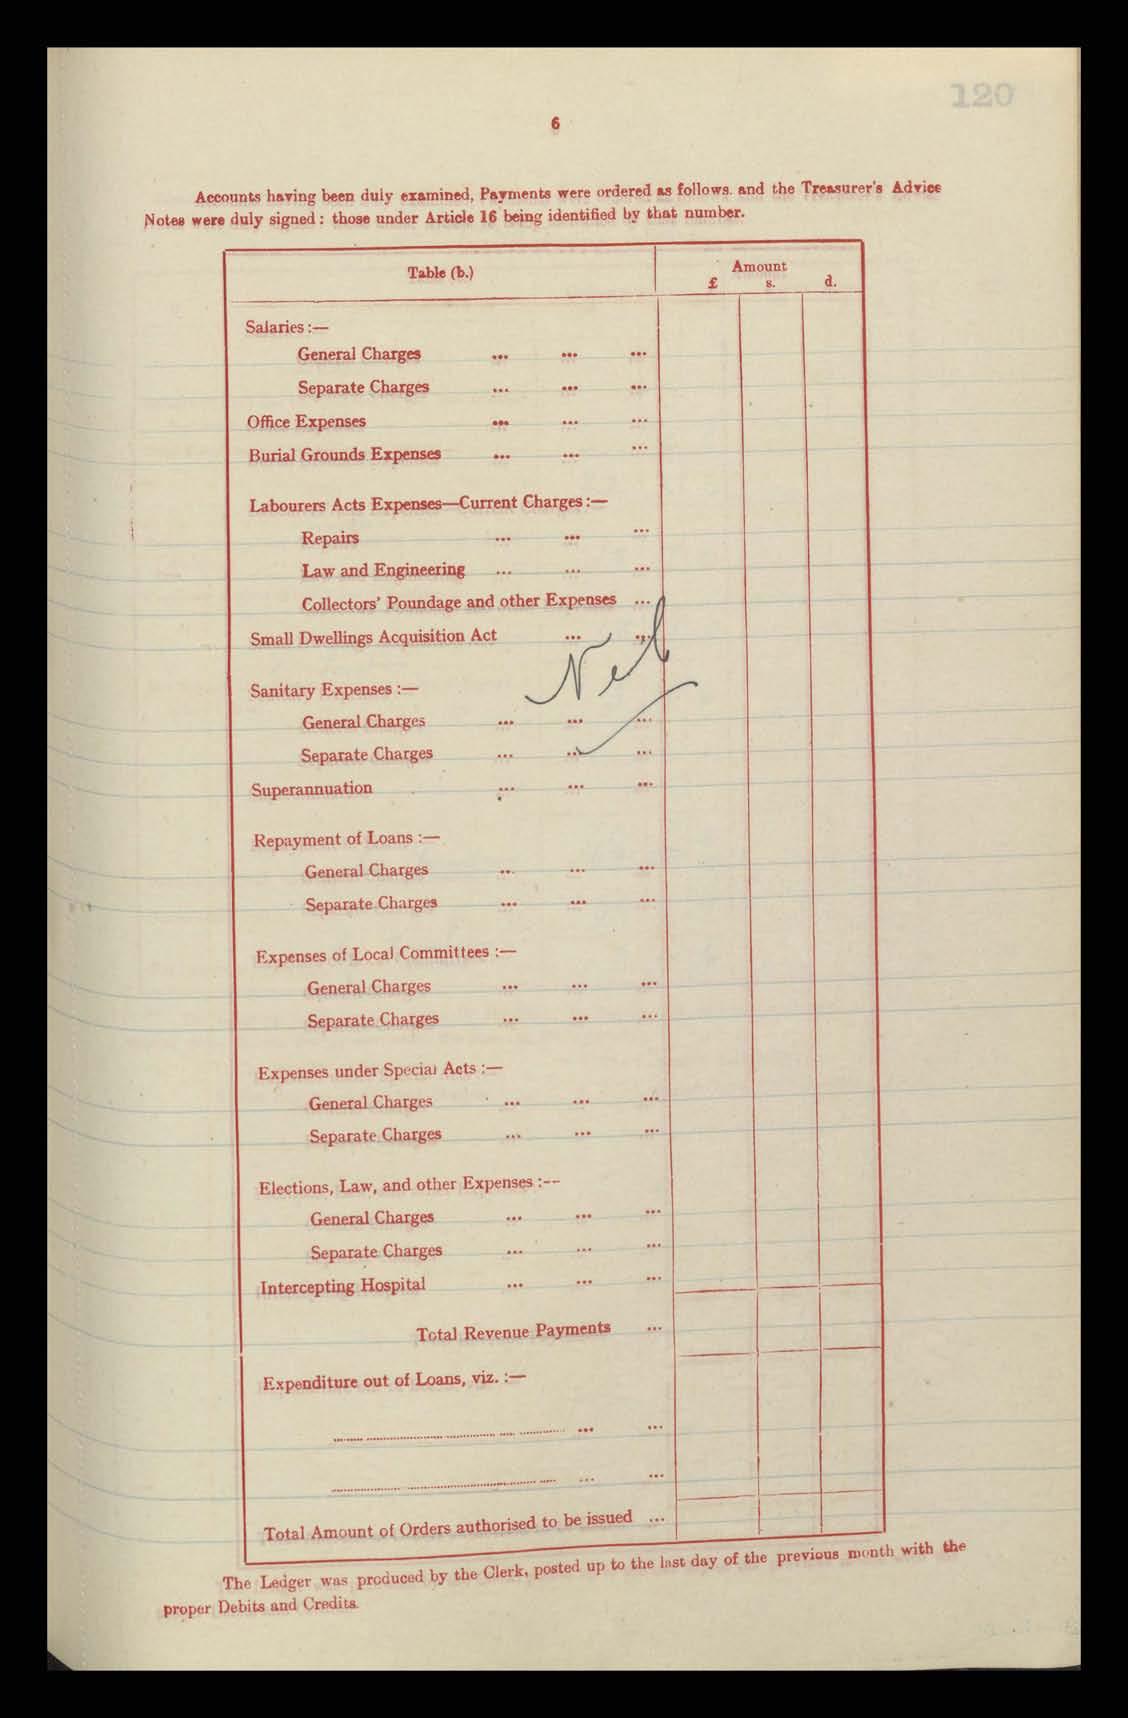 120
6
Accounts having been duly examined, Payments were ordered as follows. and the Treasurer's Advice
Notes were duly signed: those under Article 16 being identified by that number.
Table (b.)
Amount
£ s. d.
Salaries :—
General Charges ... ... ...
Separate Charges ... ... ...
Office Expenses ... ... ...
Burial Grounds Expenses ... ... ...
Labourers Acts Expenses—Current Charges :—
Repairs ... ... ...
Law and Engineering ... ... ...
Collectors' Poundage and other Expenses ...
Small Dwellings Acquisition Act ... ...
Nil
Sanitary Expenses :—
General Charges ... ... ...
Separate Charges ... ... ...
Superannuation ... ... ...
Repayment of Loans :—
General Charges ... ... ...
Separate Charges ... ... ...
Expenses of Local Committees :—
General Charges ... ... ...
Separate Charges ... ... ...
Expenses under Special Acts :—
General Charges ... ... ...
Separate Charges ... ... ...
Elections, Law, and other Expenses :--
General Charges ... ... ...
Separate Charges ... ... ...
Intercepting Hospital ... ... ...
Total Revenue Payments ...
Expenditure out of Loans, viz. :—
... ...
... ...
Total Amount of Orders authorised to be issued ...
The Ledger was produced by the Clerk, posted up to the last day of the previous month with the
proper Debits and Credits.